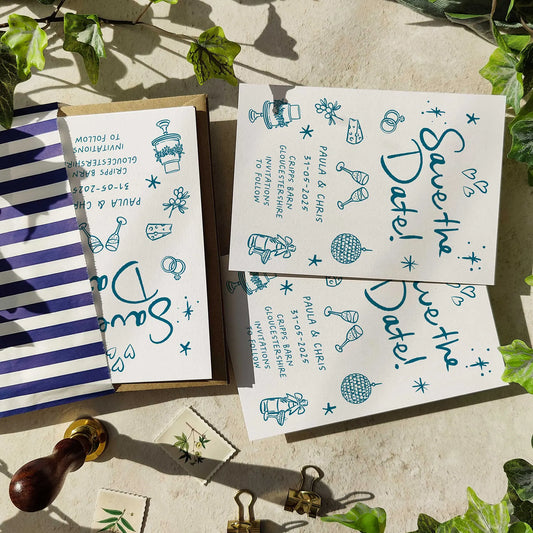 Save the
Date!
PAULA & CHRIS
31-05-2025
CRIPPS BARN
GLOUCESTERSHIRE
INVITATIONS
TO FOLLOW
Save the
Date!
PAULA & CHRIS
31-05-2025
CRIPPS BARN
GLOUCESTERSHIRE
INVITATIONS
TO FOLLOW
Save
Da
PAULA & CH
31-05-2025
CRIPPS BARN
GLOUCESTERSHIRE
INVITATIONS
TO FOLLOW